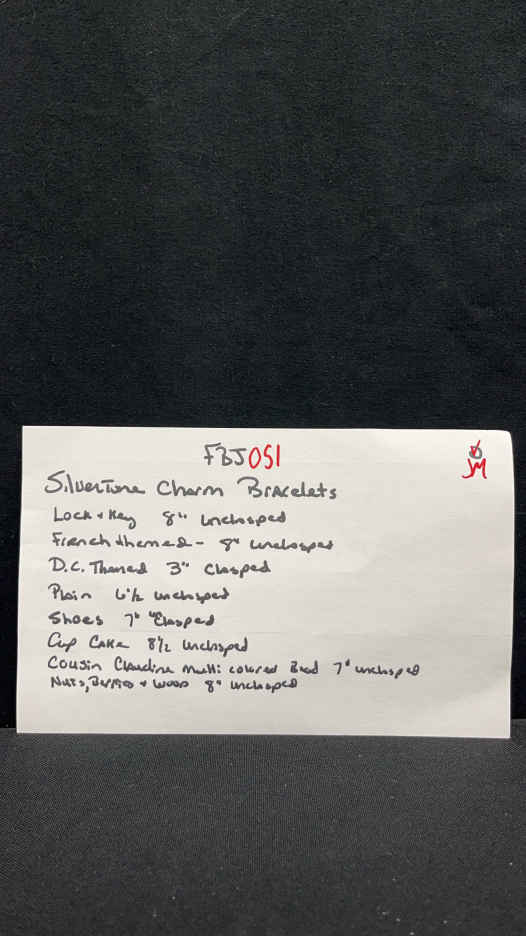 FBJ051
JM
Silvertone Charm Bracelets
Lock + Key 8" unclasped
French themed - 8" unclasped
D.C. Themed 3" Clasped
Plain 6 1/2 unclasped
Shoes 7" Clasped
Cup Cake 8 1/2 unclasped
Cousin Claudine Multi colored Bead 7" unclasped
Nuts, Berries + Wood 8" unclasped